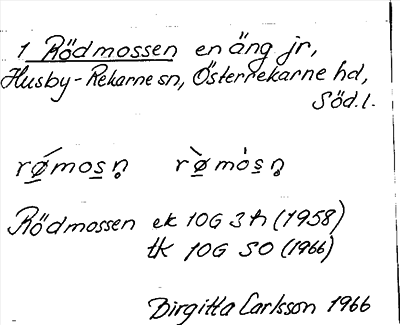 1 Rödmossen en äng jr,
Husby-Rekarne sn, Österrekarne hd,
Söd.l.
rǿ̲mos̲n̥ rø̲̀mȯs̲n̥
Rödmossen ek 10G 3h (1958)
tk 10G SO (1966)
Birgitta Carlsson 1966